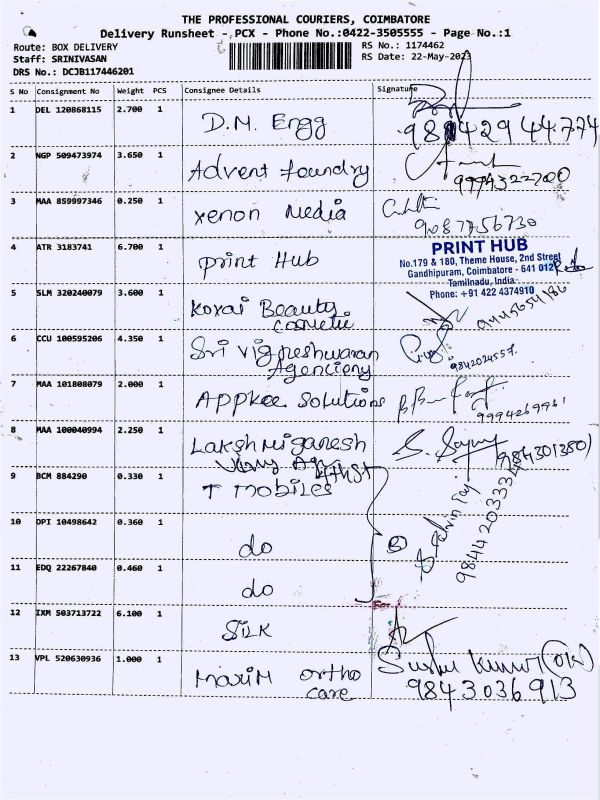 THE PROFESSIONAL COURIERS, COIMBATORE
Delivery Runsheet - PCX - Phone No.:0422-3505555 - Page No.:1
Route: BOX DELIVERY
Staff: SRINIVASAN
DRS No.: DCJB117446201
RS No.: 1174462
RS Date: 22-May-2023
S No Consignment No Weight PCS Consignee Details Signature
1 DEL 120868115 2.700 1 D.M. Engg
2 NGP 509473974 3.650 1 Advent foundry
9994322700
3 MAA 859997346 0.250 1 xenon Media
9087756730
4 ATR 3183741 6.700 1 print Hub
PRINT HUB
No.179 & 180, Theme House, 2nd Street
Gandhipuram, Coimbatore - 641 012
Tamilnadu, India
Phone: +91 422 4374910
5 SLM 320240079 3.600 1 Kovai Beauty
cosmetic
6 CCU 100595206 4.350 1 Sri vigneshwaran
9842024557
7 MAA 101808079 2.000 1 Appkee solutions
8 MAA 100040994 2.250 1 Lakshmiganesh
9 BCM 884290 0.330 1 T mobiles
10 DPI 10498642 0.360 1 do
11 EDQ 22267840 0.460 1 do
12 IXM 503713722 6.100 1 SILK
13 VPL 520630936 1.000 1 Maxim ortho
care
9843036913